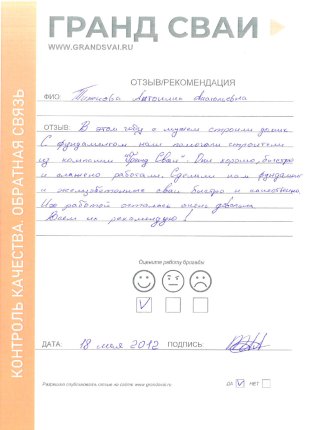 ГРАНД СВАИ
WWW.GRANDSVAI.RU
КОНТРОЛЬ КАЧЕСТВА. ОБРАТНАЯ СВЯЗЬ
ОТЗЫВ/РЕКОМЕНДАЦИЯ
ФИО: Антонина Анатольевна
ОТЗЫВ: В этом году с мужем строили домик.
С фундаментом нам помогали строители
из компании "Гранд Сваи". Они хорошо, быстро
и слажено работали. Сделали нам фундамент
и железобетонные сваи быстро и качественно.
Их работой остались очень довольны.
Всем их рекомендую!
Оцените работу бригады
ДАТА: 18 мая 2012 ПОДПИСЬ:
Разрешаю опубликовать отзыв на сайте www.grandsvai.ru ДА НЕТ